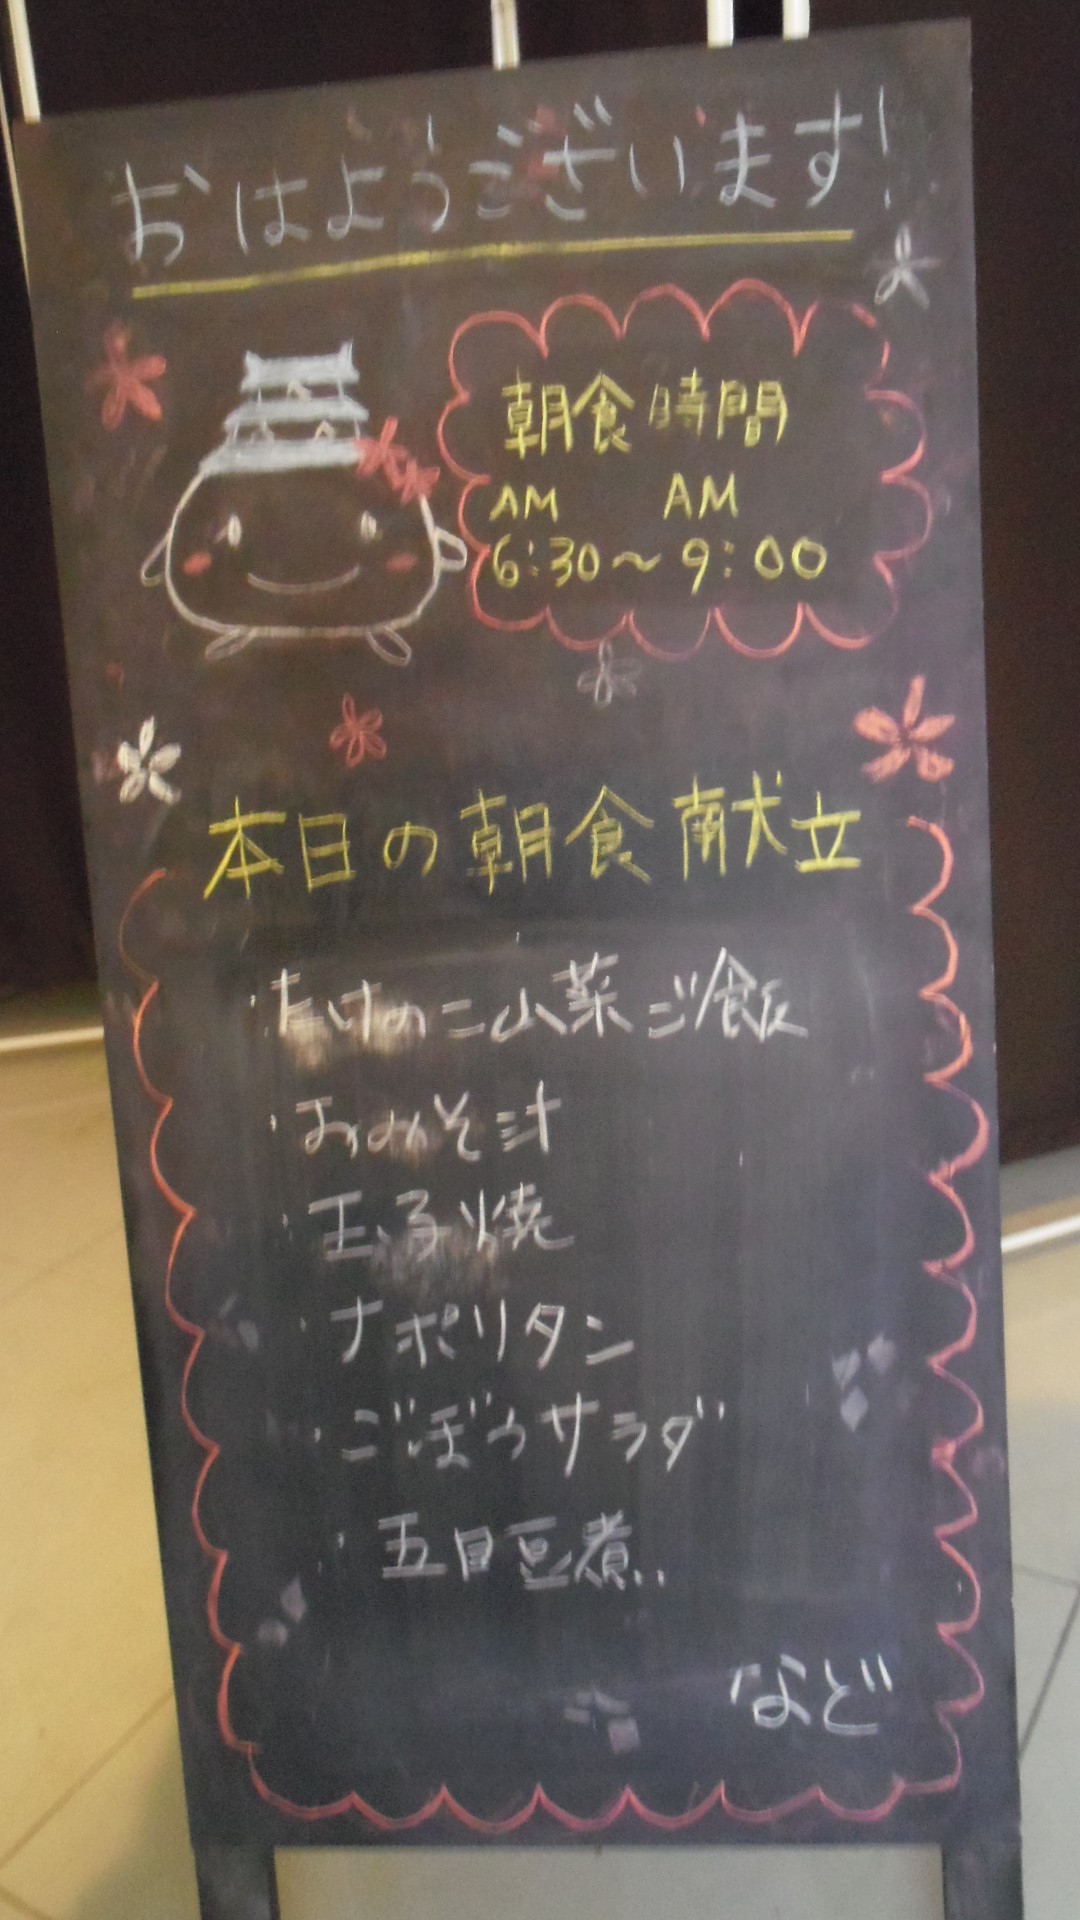 おはようございます!
朝食時間
AM AM
6:30～9:00
本日の朝食献立
・たけのこ山菜ご飯
・おみそ汁
・玉子焼
・ナポリタン
・ごぼうサラダ
・五目豆煮..
など